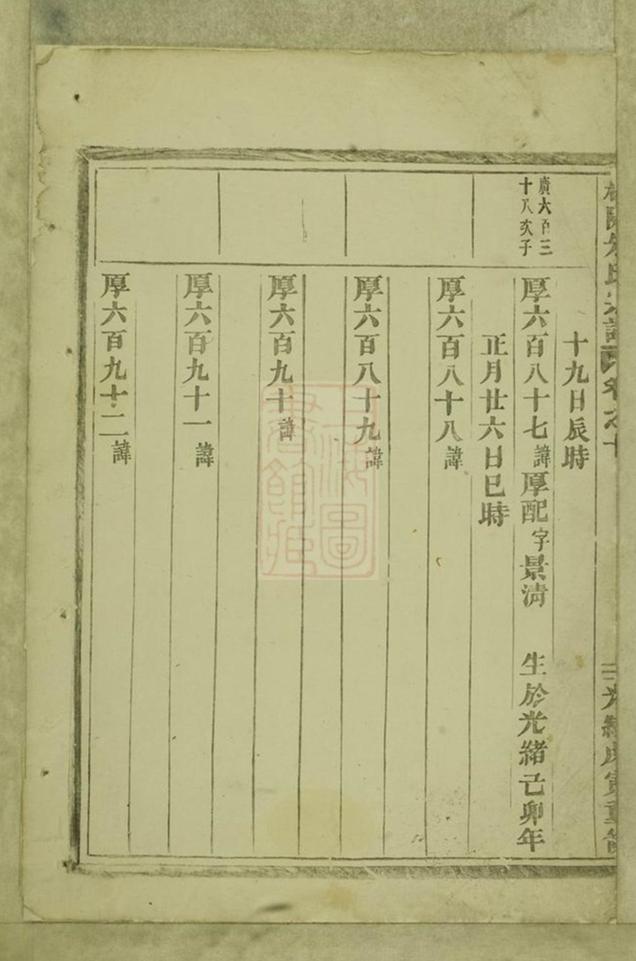 十九日辰時
廣六百三
十八次子
厚六百八十七諱厚配字景清 生於光緒己卯年
正月廿六日巳時
厚六百八十八諱
厚六百八十九諱
厚六百九十諱
厚六百九十一諱
厚六百九十二諱
上海圖
書館藏